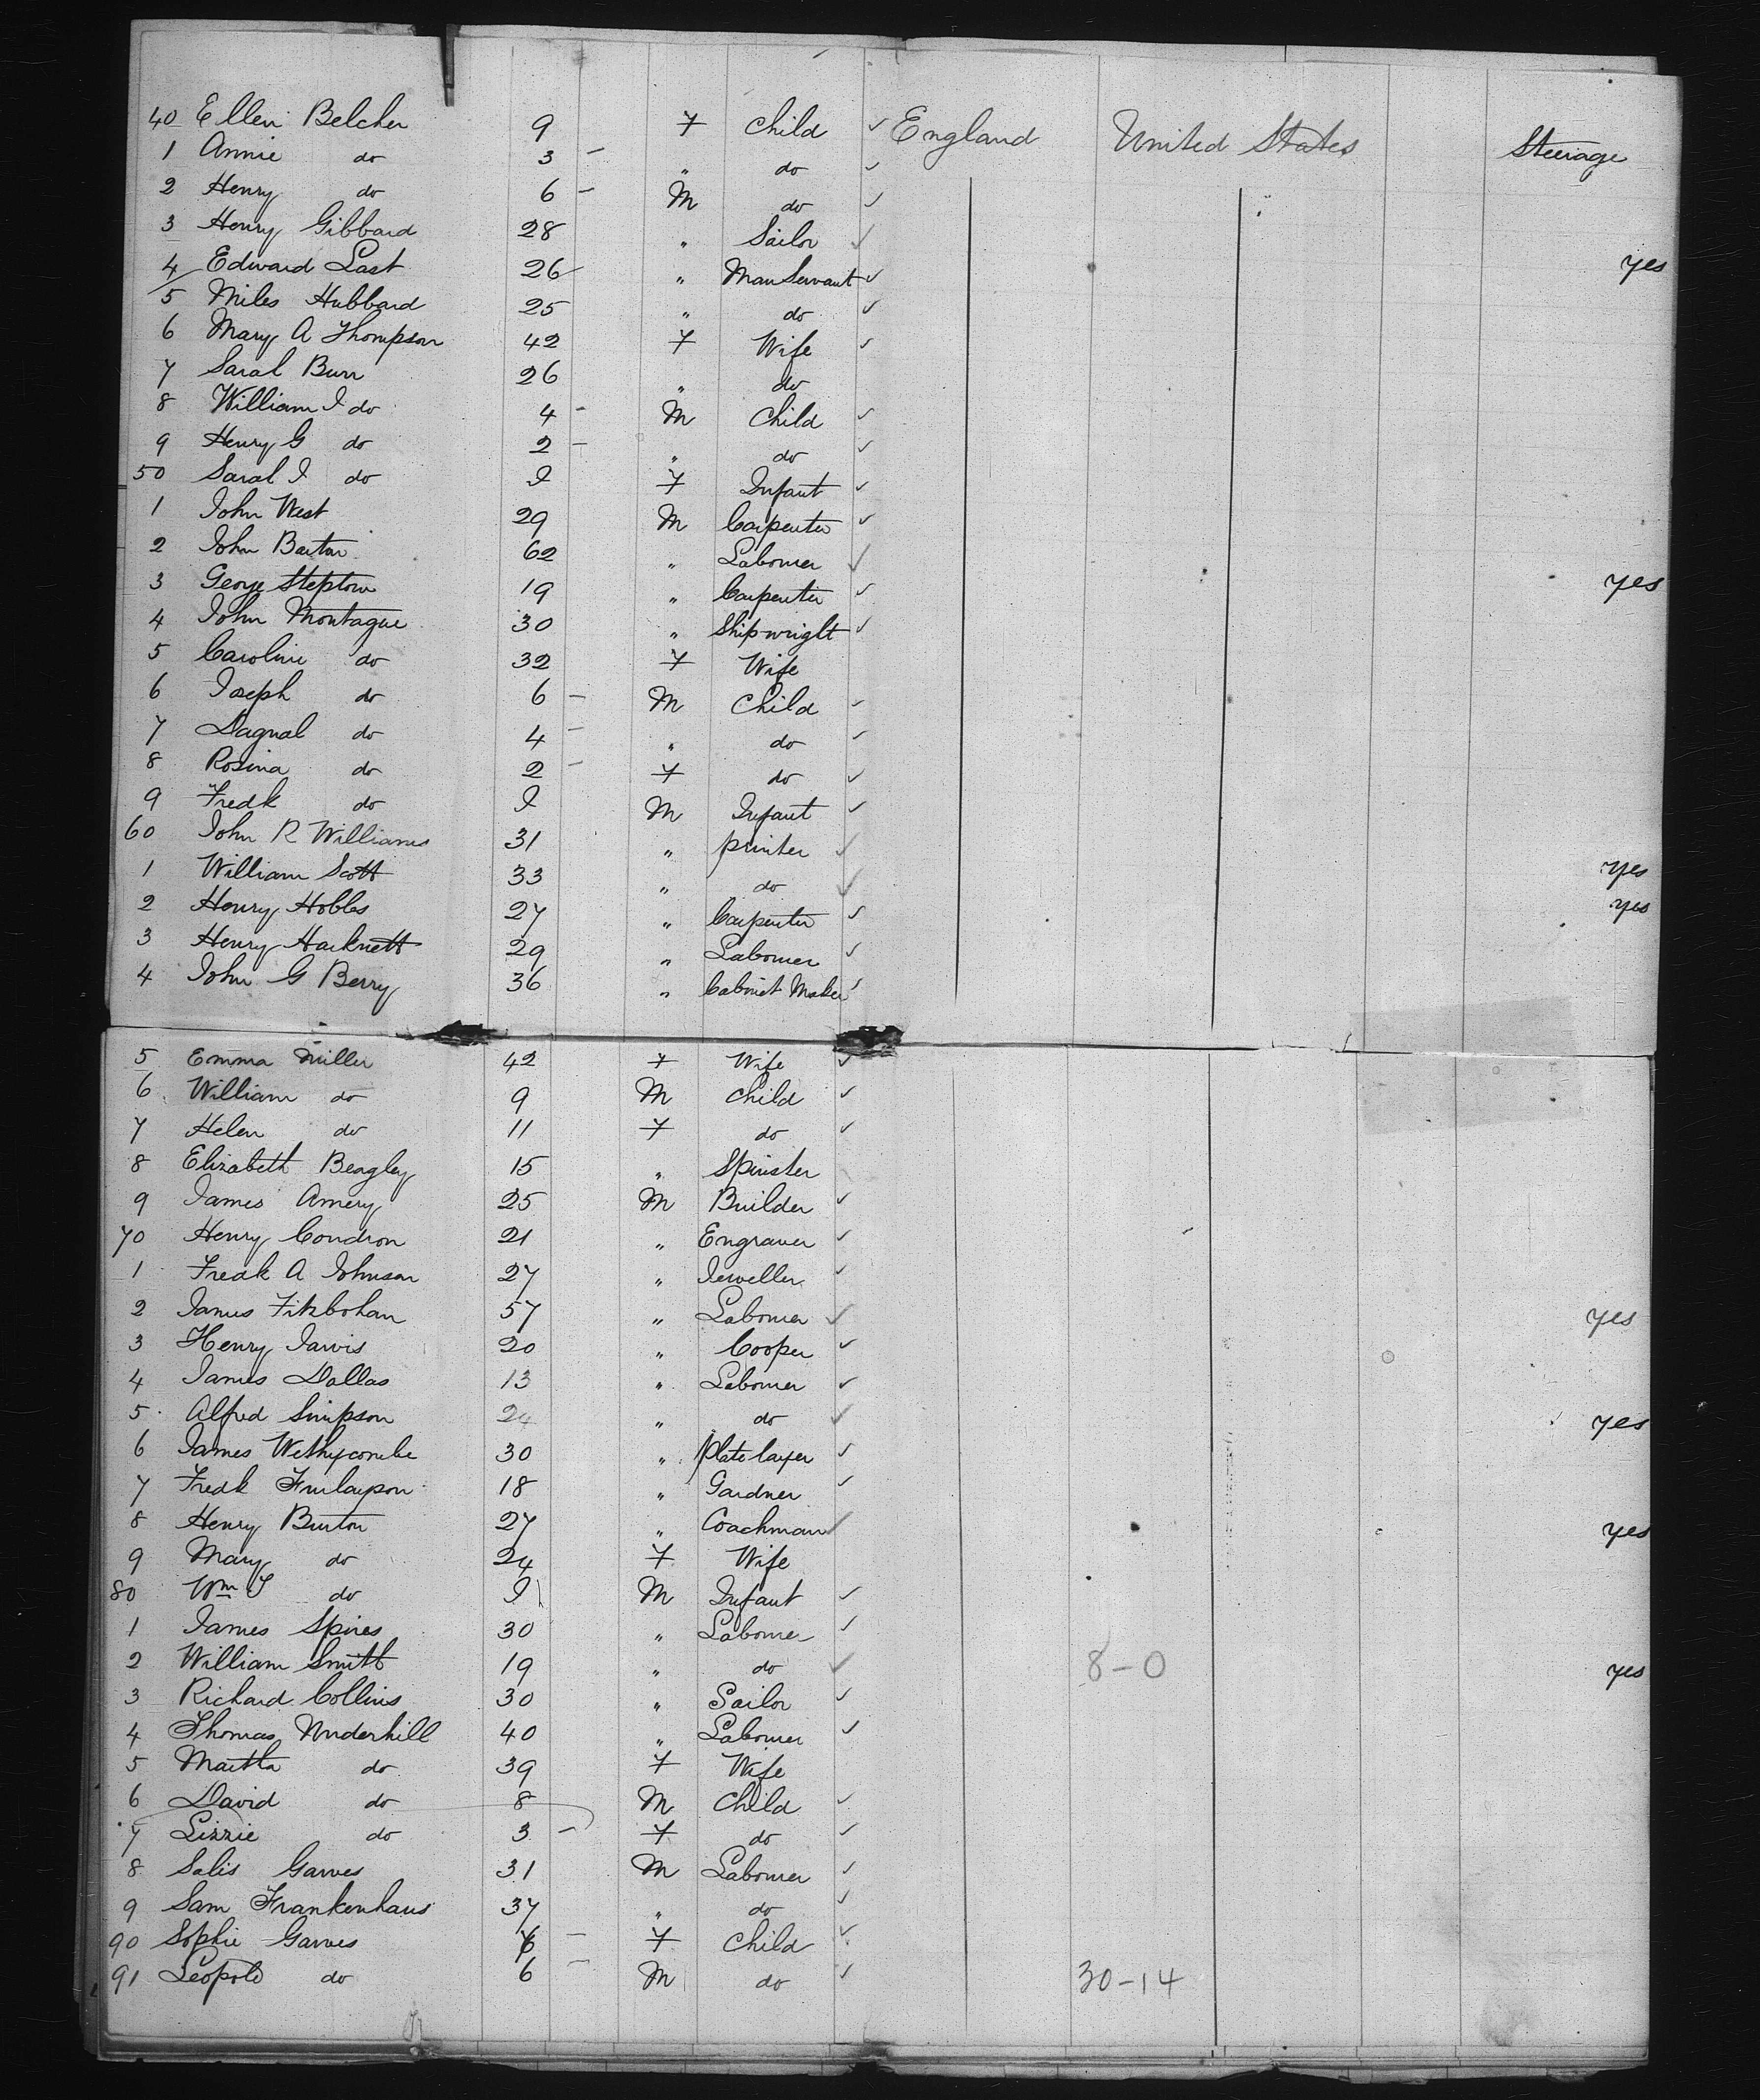 40 Ellen Belcher 9 F Child ✓ England United States Steerage
1 Annie do 3 – " do ✓
2 Henry do 6 – M do ✓
3 Henry Gibbard 28 " Sailor ✓
4 Edward Last 26 " Man Servant ✓ yes
5 Miles Hubbard 25 " do ✓
6 Mary A Thompson 42 F Wife ✓
7 Sarah Burr 26 " do
8 William J do 4 – M Child ✓
9 Henry G do 2 – " do ✓
50 Sarah J do I F Infant ✓
1 John West 29 M Carpenter ✓
2 John Barton 62 " Labourer ✓
3 George Steptow 19 " Carpenter ✓ yes
4 John Montague 30 " Shipwright ✓
5 Caroline do 32 F Wife
6 Joseph do 6 – M Child ✓
7 Dagnal do 4 – " do ✓
8 Rosina do 2 – F do ✓
9 Fredk do I M Infant ✓
60 John R Williams 31 " printer ✓
1 William Scott 33 " do ✓ yes
2 Henry Hobbs 27 " Carpenter ✓ yes
3 Henry Harknett 29 " Labourer ✓
4 John G Berry 36 " Cabinet Maker ✓
5 Emma Miller 42 F Wife ✓
6 William do 9 M Child ✓
7 Helen do 11 F do ✓
8 Elizabeth Beagley 15 " Spinster
9 James Amery 25 M Builder ✓
70 Henry Condron 21 " Engraver ✓
1 Fredk A Johnson 27 " Jeweller ✓
2 James 57 " Labourer ✓ yes
3 Henry Jarvis 20 " Cooper ✓
4 James Dallas 13 " Labourer ✓
5 Alfred Simpson 24 " do ✓ yes
6 James Wethycombe 30 " Plate layer ✓
7 Fredk 18 " Gardner ✓
8 Henry Burton 27 " Coachman ✓ yes
9 Mary do 24 F Wife
80 Wm J do I M Infant ✓
1 James Spires 30 " Labourer ✓
2 William Smith 19 " do ✓ 8–0 yes
3 Richard Collins 30 " Sailor ✓
4 Thomas Underhill 40 " Labourer ✓
5 Martha do 39 F Wife
6 David do 8 M Child ✓
7 Lizzie do 3 – F do ✓
8 Salis Garves 31 M Labourer ✓
9 Sam Frankenhaus 37 " do ✓
90 Sophie Garves – F Child ✓
91 Leopold do 6 – M do ✓ 30–14